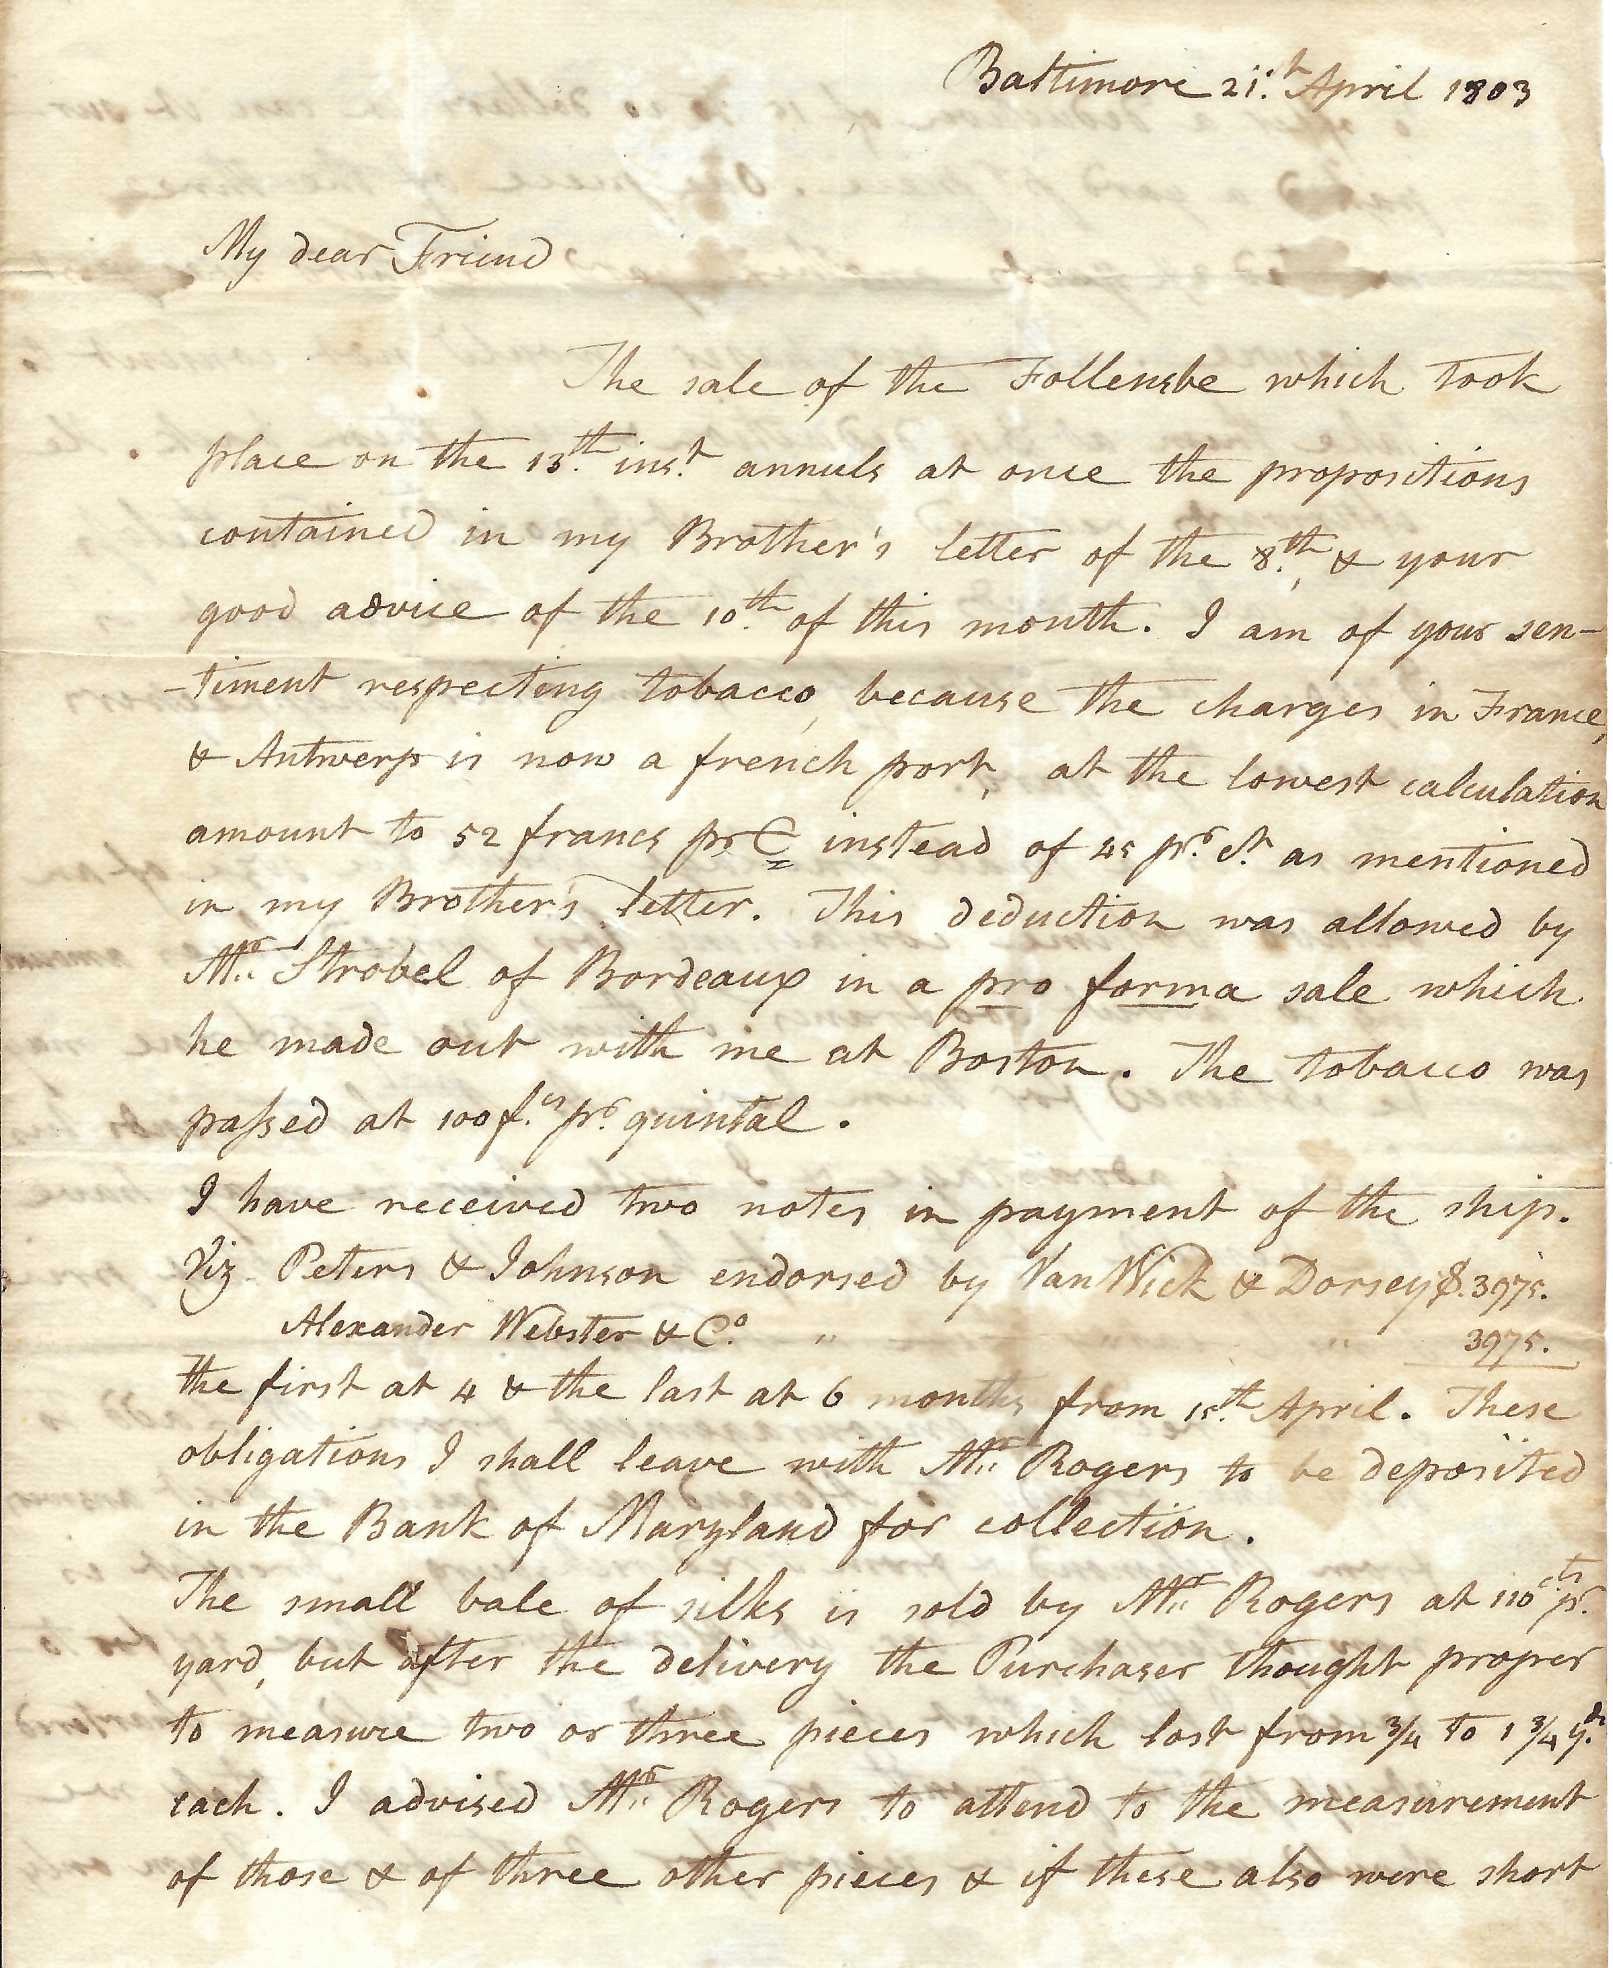 Baltimore 21.st April 1803
My dear Friend
The sale of the Follensbe which took
place on the 13.th ins.t annuls at once the propositions
contained in my Brother's letter of the 8.th, & your
good advice of the 10.th of this month. I am of your sen-
-timent respecting tobacco, because the charges in France,
& Antwerp is now a french port, at the lowest calculation
amount to 52 francs pr C instead of 45 pr. Ct as mentioned
in my Brother's letter. This deduction was allowed by
Mr. Strobel of Bordeaux in a pro forma sale which
he made out with me at Boston. The tobacco was
passed at 100 f.cs pr. quintal.
I have received two notes in payment of the ship.
Viz Peters & Johnson endorsed by Van Wick & Dorsey $.3975.
Alexander Webster & Co. " " 3975.
the first at 4 & the last at 6 months from 15.th April. These
obligations I shall leave with Mr. Rogers to be deposited
in the Bank of Maryland for collection.
The small bale of silks is sold by Mr. Rogers at 110 cts pr.
yard, but after the delivery the Purchaser thought proper
to measure two or three pieces which lost from 3/4 to 1 3/4 y.ds
each. I advised Mr. Rogers to attend to the measurement
of those & of three other pieces & if these also were short